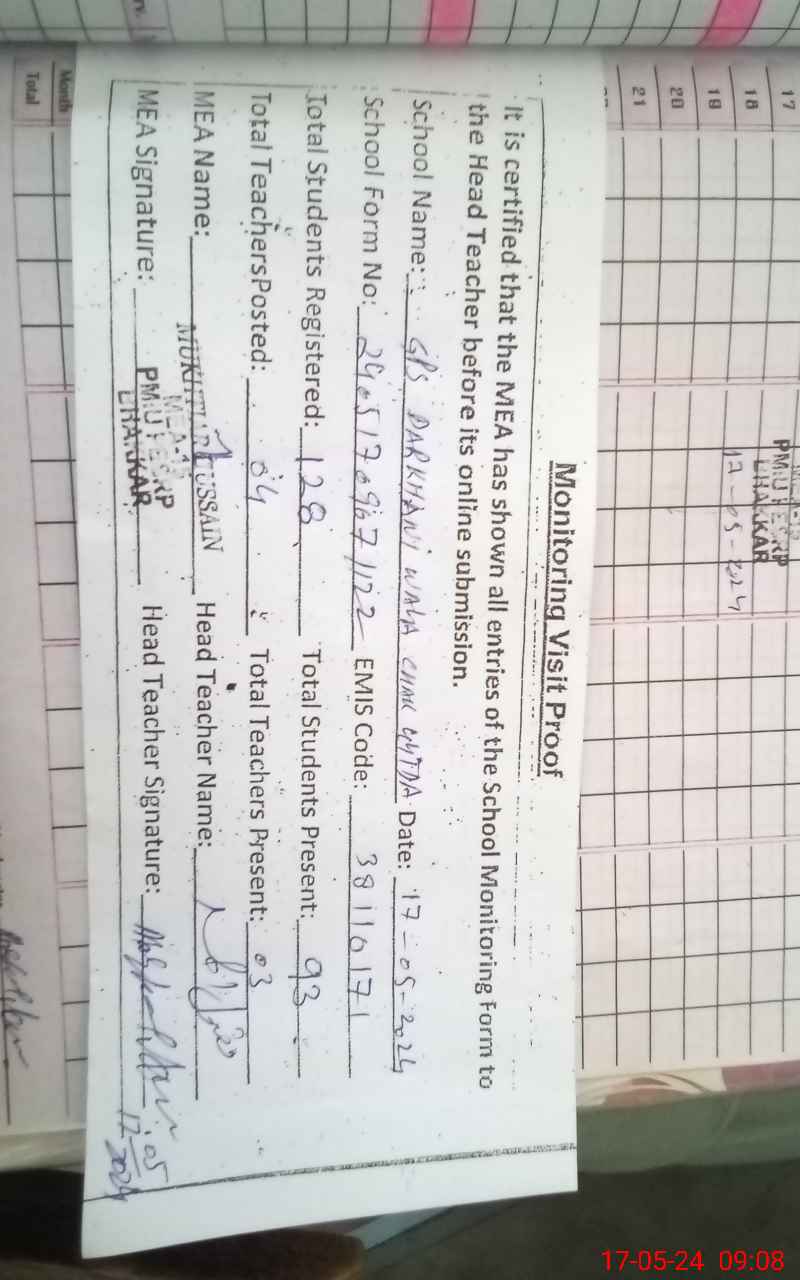 Monitoring Visit Proof
It is certified that the MEA has shown all entries of the School Monitoring Form to
the Head Teacher before its online submission.
School Name: GPS DARKHANI WALA CHAK Date: 17-05-2024
School Form No: EMIS Code: 38110171
Total Students Registered: 128 Total Students Present: 93
Total TeachersPosted: 04 Total Teachers Present: 03
MEA Name: MUKHTIAR HUSSAIN Head Teacher Name:
MEA Signature: Head Teacher Signature:
BHAKKAR
17
18
19
20
21
BHAKKAR
17-05-2024
Month
Total
17-05-24 09:08